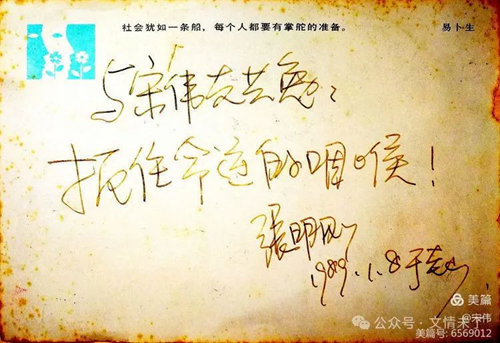 社会犹如一条船，每个人都要有掌舵的准备。 易卜生
与宋伟友共勉：
扼住命运的咽喉！
張明
1989.1.8于
美篇
@宋伟
公众号·文情未了
美篇号: 6569012